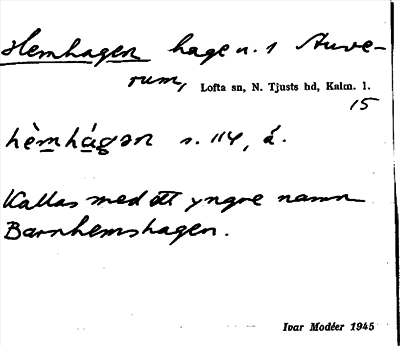 Hemhagen hage n. 1 Auve-
rum, Lofta sn, N. Tjusts hd, Kalm. l.
15
hèmhágən s. 114, á.
Kallas med ett yngre namn
Barnhemshagen.
Ivar Modéer 1945